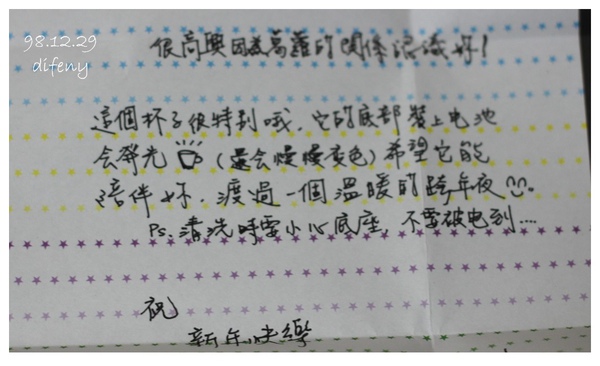 98.12.29
difeny
很高興因為葛蘿的關係認識妳!
這個杯子很特別哦,它的底部裝上电池
会發光 (還会慢慢变色)希望它能
陪伴妳,渡過一個溫暖的跨年夜
Ps.清洗時要小心底座,不要被电到....
祝
新年快樂